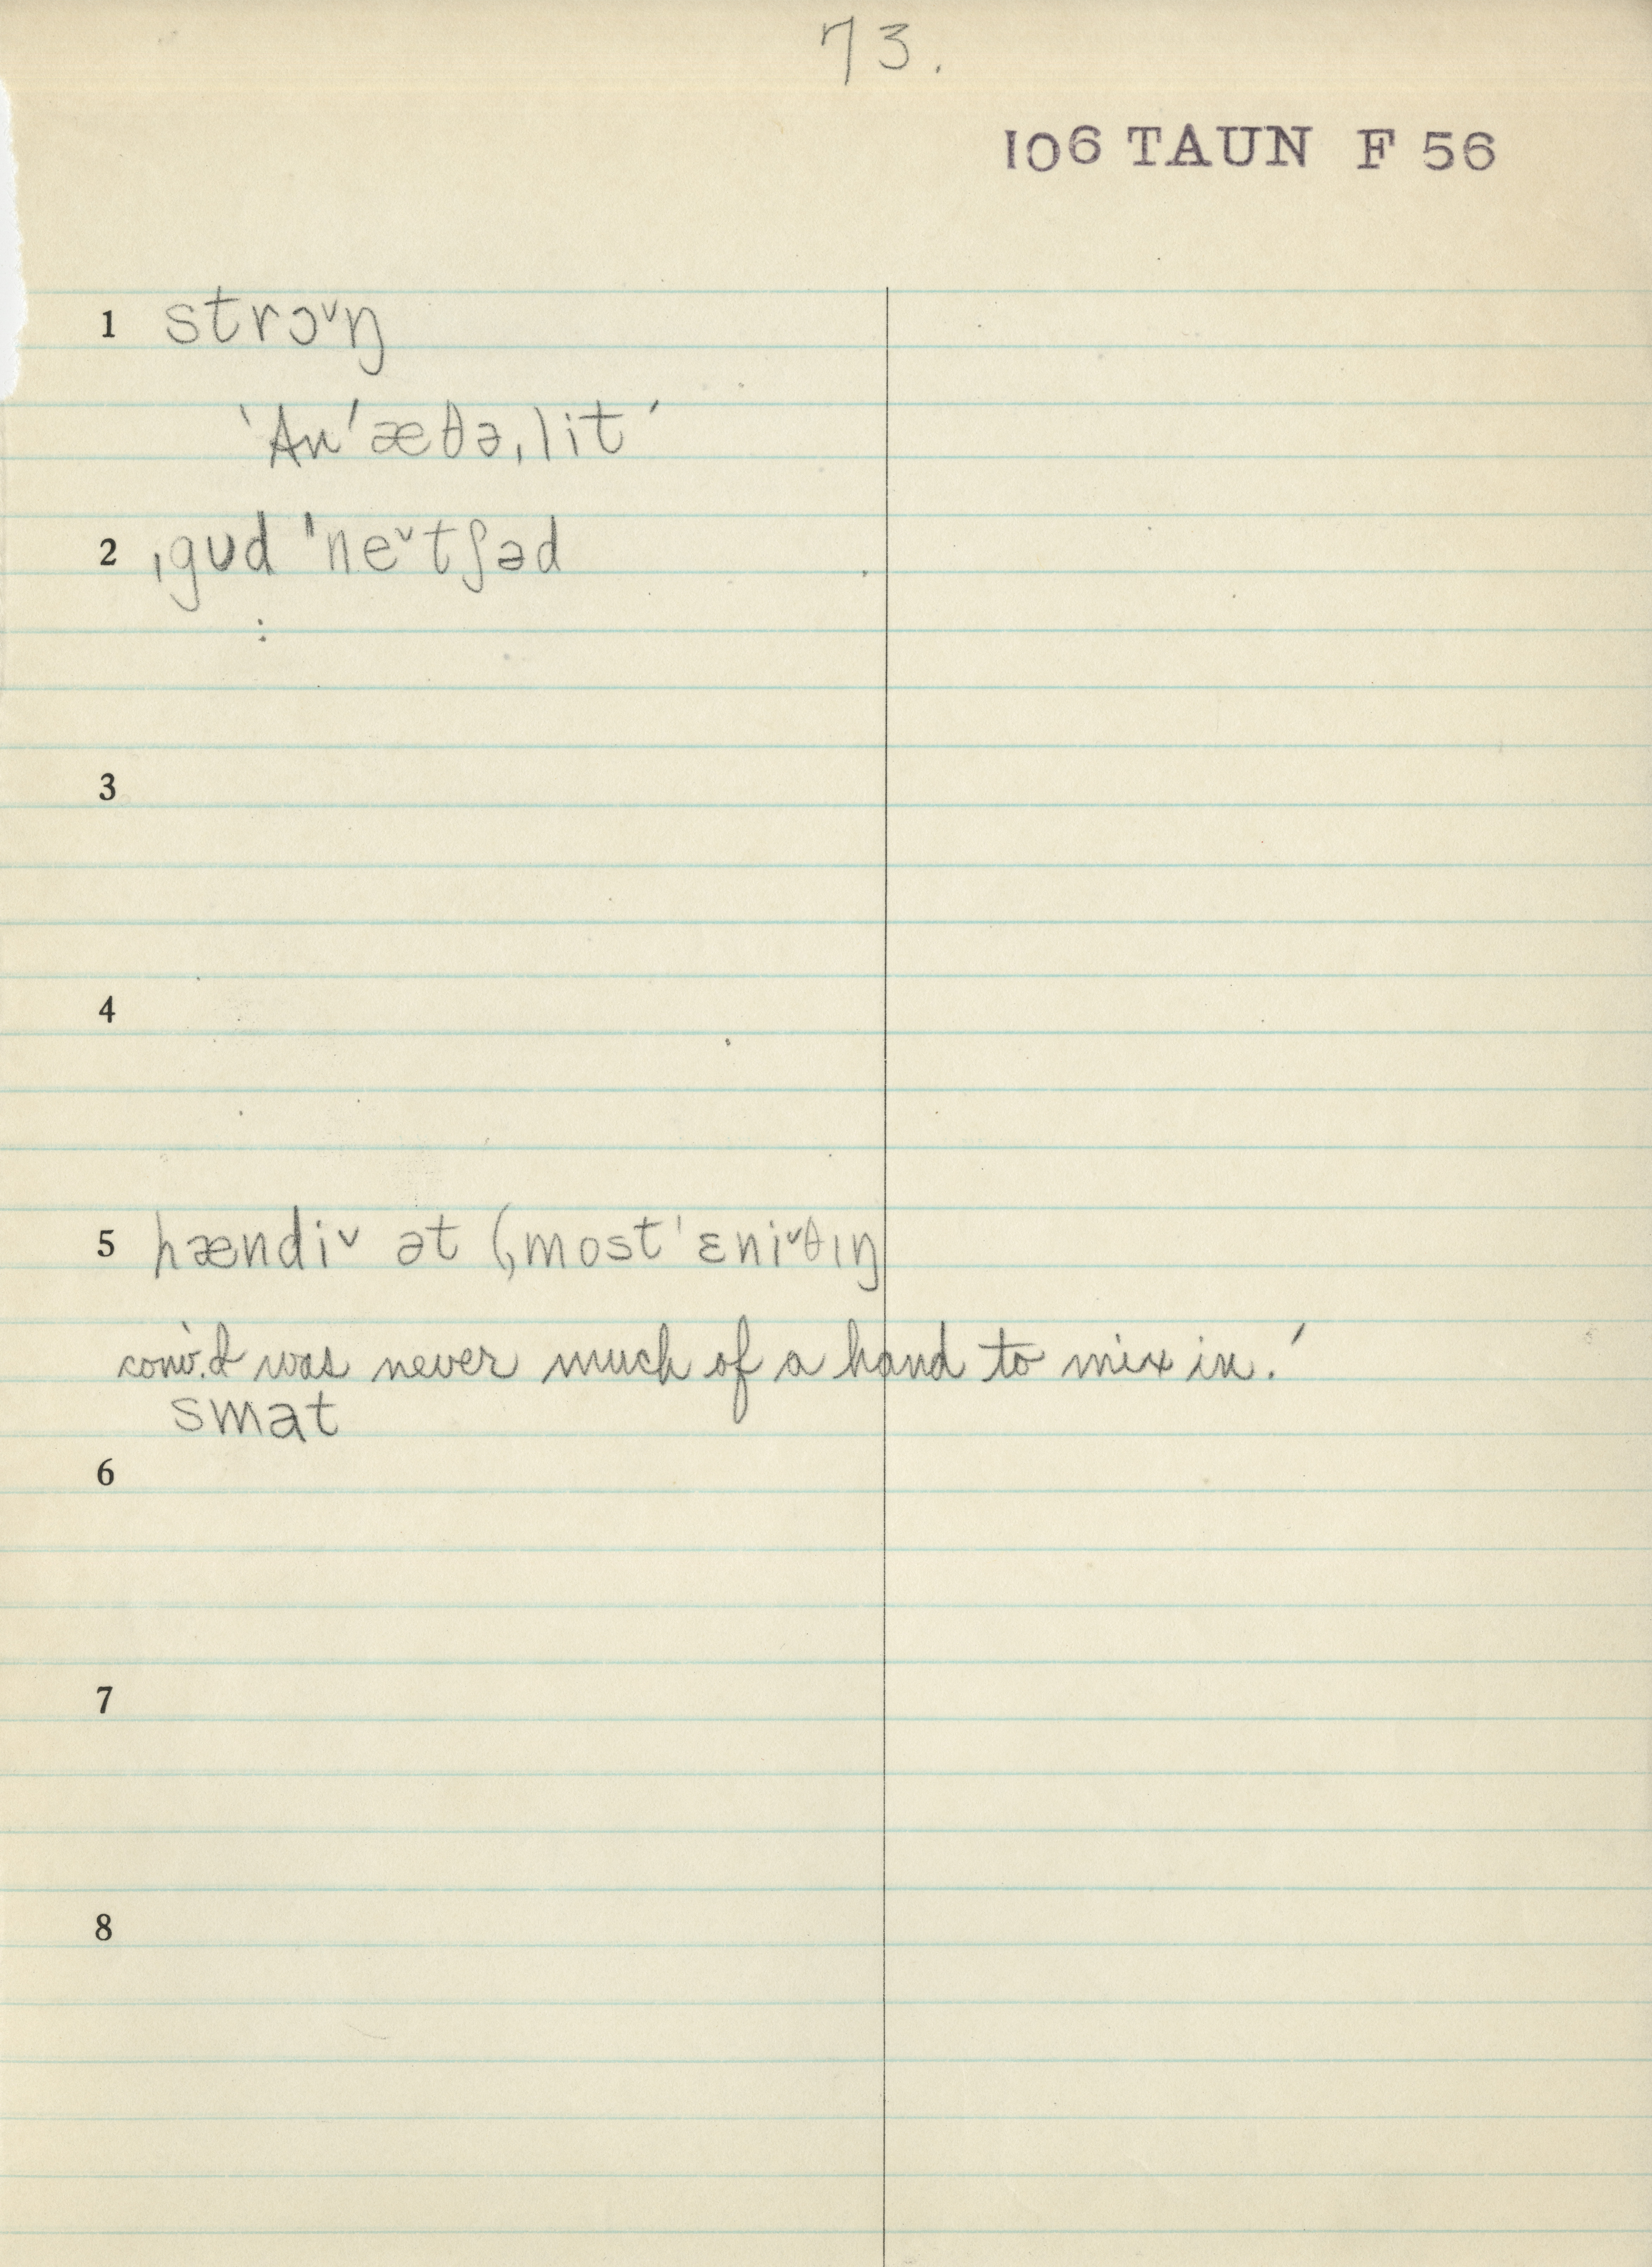 73.
106 TAUN F 56
1 strɔˇŋ
'An 'æθəˌlit'
2 ˌgʊd 'neˇtʃəd
:
3
4
5 hændiˇ ət (ˌmost 'ɛniˇθıŋ
conv. 'I was never much of a hand to mix in.'
smat
6
7
8